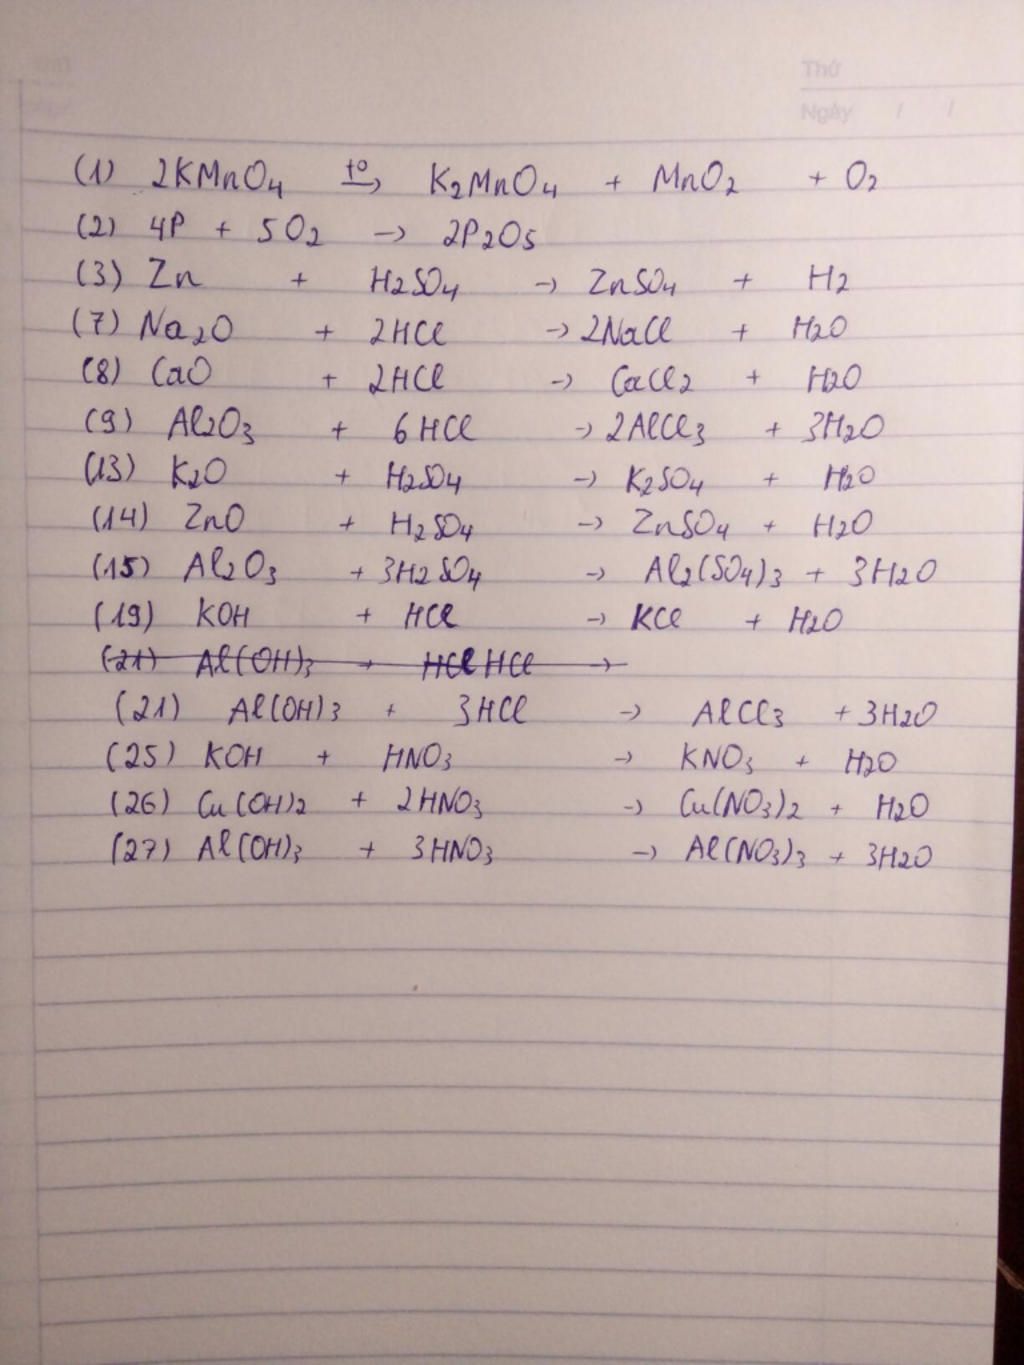 Thứ
Ngày / /
(1) 2KMnO4 t° → K2MnO4 + MnO2 + O2
(2) 4P + 5O2 → 2P2O5
(3) Zn + H2SO4 → ZnSO4 + H2
(7) Na2O + 2HCl → 2NaCl + H2O
(8) CaO + 2HCl → CaCl2 + H2O
(9) Al2O3 + 6HCl → 2AlCl3 + 3H2O
(13) K2O + H2SO4 → K2SO4 + H2O
(14) ZnO + H2SO4 → ZnSO4 + H2O
(15) Al2O3 + 3H2SO4 → Al2(SO4)3 + 3H2O
(19) KOH + HCl → KCl + H2O
(21) Al(OH)3 + HCl HCl →
(21) Al(OH)3 + 3HCl → AlCl3 + 3H2O
(25) KOH + HNO3 → KNO3 + H2O
(26) Cu(OH)2 + 2HNO3 → Cu(NO3)2 + H2O
(27) Al(OH)3 + 3HNO3 → Al(NO3)3 + 3H2O